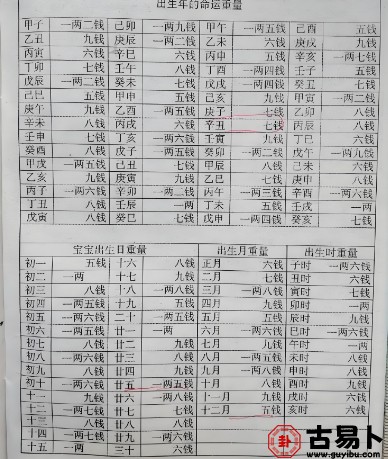 出生年的命运重量
甲子 一两二钱 己卯 一两九钱 甲午 一两五钱 己酉 五钱
乙丑 九钱 庚辰 一两二钱 乙未 六钱 庚戌 九钱
丙寅 六钱 辛巳 六钱 丙申 五钱 辛亥 一两七钱
丁卯 七钱 壬午 八钱 丁酉 一两四钱 壬子 五钱
戊辰 一两二钱 癸未 七钱 戊戌 一两四钱 癸丑 七钱
己巳 五钱 甲申 五钱 己亥 九钱 甲寅 一两二钱
庚午 九钱 乙酉 一两五钱 庚子 七钱 乙卯 八钱
辛未 八钱 丙戌 六钱 辛丑 七钱 丙辰 八钱
壬申 七钱 丁亥 一两六钱 壬寅 九钱 丁巳 六钱
癸酉 八钱 戊子 一两五钱 癸卯 一两二钱 戊午 一两九钱
甲戌 一两五钱 己丑 七钱 甲辰 八钱 己未 六钱
乙亥 九钱 庚寅 九钱 乙巳 七钱 庚申 八钱
丙子 一两六钱 辛卯 一两二钱 丙午 一两三钱 辛酉 一两六钱
丁丑 八钱 壬辰 一两 丁未 五钱 壬戌 一两
戊寅 八钱 癸巳 七钱 戊申 一两四钱 癸亥 七钱
宝宝出生日重量 出生月重量 出生时重量
初一 五钱 十六 八钱 正月 六钱 子时 一两六钱
初二 一两 十七 九钱 二月 七钱 丑时 六钱
初三 八钱 十八 一两八钱 三月 一两八钱 寅时 七钱
初四 一两五钱 十九 五钱 四月 九钱 卯时 一两
初五 一两六钱 二十 一两五钱 五月 五钱 辰时 九钱
初六 一两五钱 廿一 一两 六月 一两六钱 巳时 一两六钱
初七 八钱 廿二 九钱 七月 九钱 午时 一两
初八 一两六钱 廿三 八钱 八月 一两五钱 未时 八钱
初九 八钱 廿四 九钱 九月 一两八钱 申时 八钱
初十 一两六钱 廿五 一两五钱 十月 八钱 酉时 九钱
十一 九钱 廿六 一两八钱 十一月 九钱 戌时 六钱
十二 一两七钱 廿七 七钱 十二月 五钱 亥时 六钱
十三 八钱 廿八 八钱
十四 一两七钱 廿九 一两六钱
十五 一两 三十 六钱
卦 古易卜
www.guyibu.com